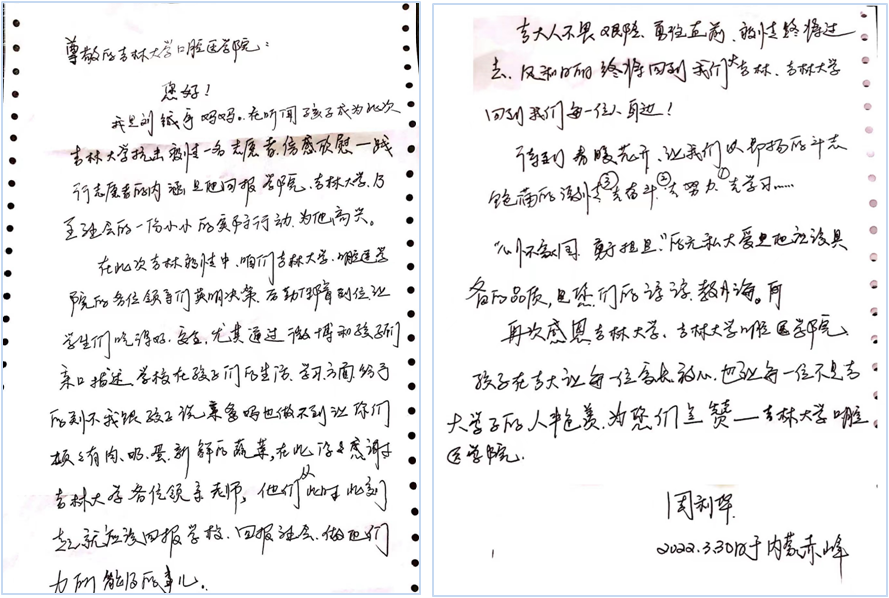 尊敬的吉林大学口腔医学院：
您好！
我是刘 妈妈。在听闻孩子成为此次
吉林大学抗击疫情一名志愿者，倍感欣慰 一线
行志愿者的内涵是他回报学院、吉林大学、乃
至社会的一份小小的实际行动，为他高兴。
在此次吉林疫情中，咱们吉林大学口腔医学
院的各位领导们英明决策，后勤保障到位，让
学生们吃得好、安全，尤其通过微博和孩子们
亲口描述，学校在孩子们的生活、学习方面给予
的到 我跟孩子说，亲爸妈也做不到让你们
顿顿有肉、奶、蛋、新鲜的蔬菜，在此 感谢
吉林大学各位领导老师，他们从此时此刻
起就应该回报学校、回报社会、做他们
力所能及的事儿。
吉大人不畏艰险、勇往直前，疫情终将过
去，风和日丽终将回到我们大吉林、吉林大学
回到我们每一位人身边！
待到春暖花开，让我们以昂扬的斗志
饱满的激情③去奋斗②去努力①去学习……
家国、勇于担当"的无私大爱是他应该具
备的品质，是您们的谆谆教诲。
再次感恩吉林大学、吉林大学口腔医学院
孩子在吉大让每一位家长放心，也让每一位不是吉
大学子的人羡慕，为您们点赞——吉林大学口腔
医学院。
周利华
2022.3.30 于内蒙赤峰